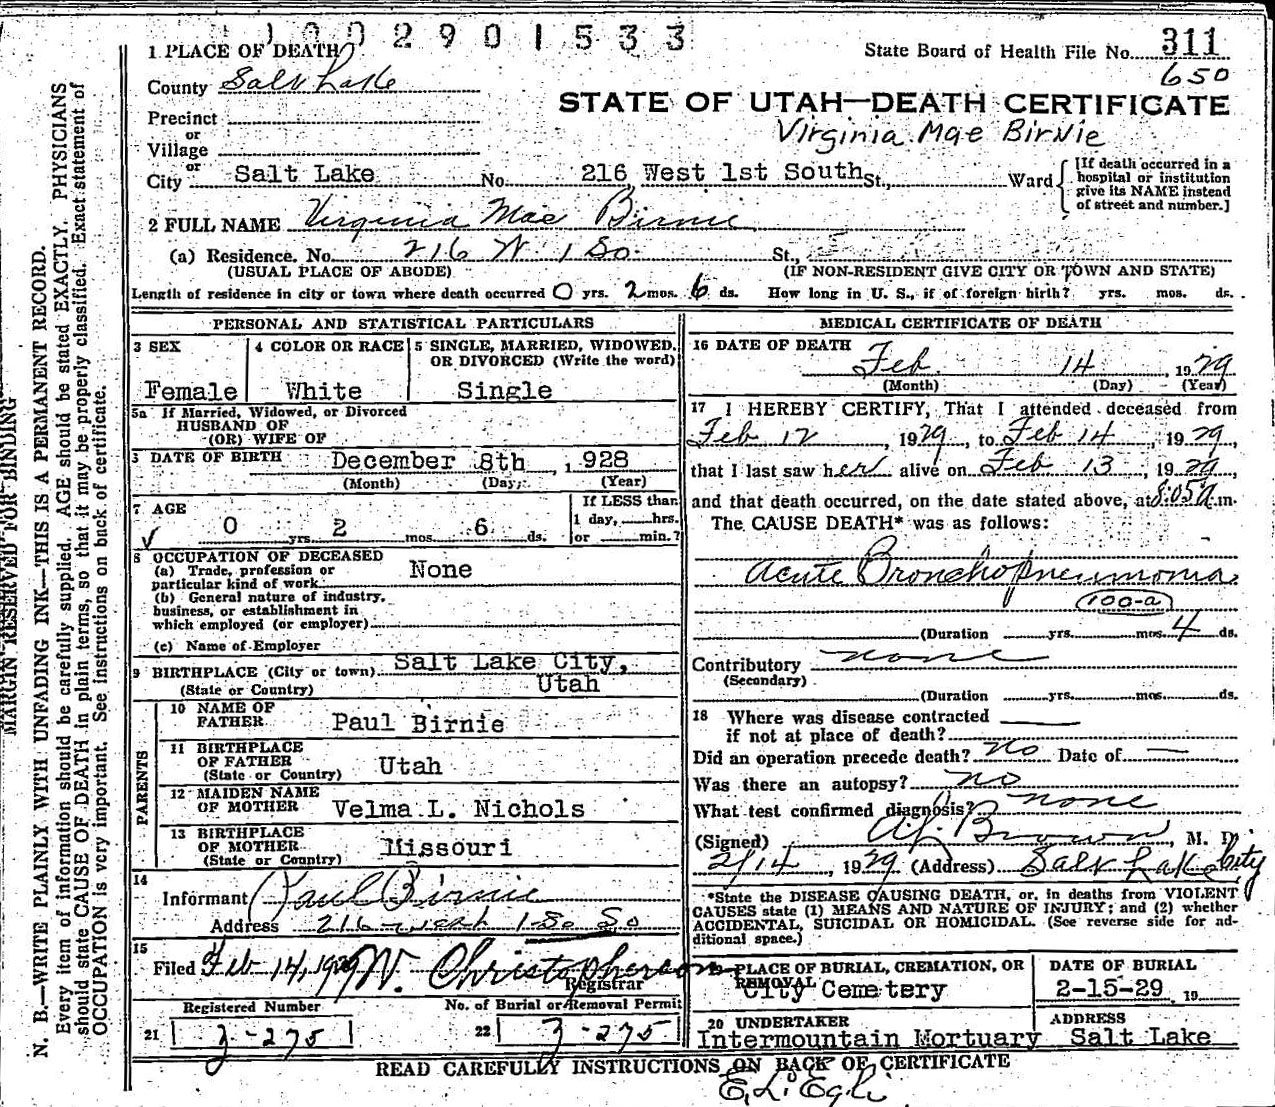 1002901533
1 PLACE OF DEATH
State Board of Health File No. 311
650
County Salt Lake
STATE OF UTAH—DEATH CERTIFICATE
Virginia Mae Birnie
Precinct
or
Village
or
City Salt Lake No. 216 West 1st South St., Ward
[If death occurred in a
hospital or institution
give its NAME instead
of street and number.]
2 FULL NAME Virginia Mae Birnie
(a) Residence. No. 216 W 1 So. St.,
(USUAL PLACE OF ABODE) (IF NON-RESIDENT GIVE CITY OR TOWN AND STATE)
Length of residence in city or town where death occurred 0 yrs. 2 mos. 6 ds. How long in U. S., if of foreign birth? yrs. mos. ds.
PERSONAL AND STATISTICAL PARTICULARS
3 SEX
Female
4 COLOR OR RACE
White
5 SINGLE, MARRIED, WIDOWED,
OR DIVORCED (Write the word)
Single
5a If Married, Widowed, or Divorced
HUSBAND OF
(OR) WIFE OF
DATE OF BIRTH December 8th, 1928
(Month) (Day) (Year)
7 AGE
0 yrs. 2 mos. 6 ds.
If LESS than
1 day, hrs.
or min.?
8 OCCUPATION OF DECEASED
(a) Trade, profession or
particular kind of work None
(b) General nature of industry,
business, or establishment in
which employed (or employer)
(c) Name of Employer
9 BIRTHPLACE (City or town) Salt Lake City,
(State or Country) Utah
PARENTS
10 NAME OF
FATHER Paul Birnie
11 BIRTHPLACE
OF FATHER
(State or Country) Utah
12 MAIDEN NAME
OF MOTHER Velma L. Nichols
13 BIRTHPLACE
OF MOTHER
(State or Country) Missouri
14
Informant Paul Birnie
Address 216 West 1 So
15
Filed Feb 14, 1929 W. Christopherson
Registrar
Registered Number
21 3-275
No. of Burial or Removal Permit
22 3-275
MEDICAL CERTIFICATE OF DEATH
16 DATE OF DEATH
Feb 14, 1929
(Month) (Day) (Year)
17 I HEREBY CERTIFY, That I attended deceased from
Feb 12, 1929, to Feb 14, 1929,
that I last saw her alive on Feb 13, 1929,
and that death occurred, on the date stated above, at 8:05 A.m.
The CAUSE DEATH* was as follows:
Acute Bronchopneumonia
100-a
(Duration yrs. mos. 4 ds.
Contributory none
(Secondary)
(Duration yrs. mos. ds.
18 Where was disease contracted
if not at place of death?
Did an operation precede death? no Date of —
Was there an autopsy? no
What test confirmed diagnosis? none
(Signed) A.J. Brown, M. D.
2/14, 1929 (Address) Salt Lake City
*State the DISEASE CAUSING DEATH, or, in deaths from VIOLENT
CAUSES state (1) MEANS AND NATURE OF INJURY; and (2) whether
ACCIDENTAL, SUICIDAL OR HOMICIDAL. (See reverse side for ad-
ditional space.)
19 PLACE OF BURIAL, CREMATION, OR
REMOVAL
City Cemetery
DATE OF BURIAL
2-15-29, 19
20 UNDERTAKER
Intermountain Mortuary
ADDRESS
Salt Lake
READ CAREFULLY INSTRUCTIONS ON BACK OF CERTIFICATE
E. L. Egli
MARGIN RESERVED FOR BINDING
N. B.—WRITE PLAINLY WITH UNFADING INK—THIS IS A PERMANENT RECORD.
Every item of information should be carefully supplied. AGE should be stated EXACTLY. PHYSICIANS
should state CAUSE OF DEATH in plain terms, so that it may be properly classified. Exact statement of
OCCUPATION is very important. See instructions on back of certificate.